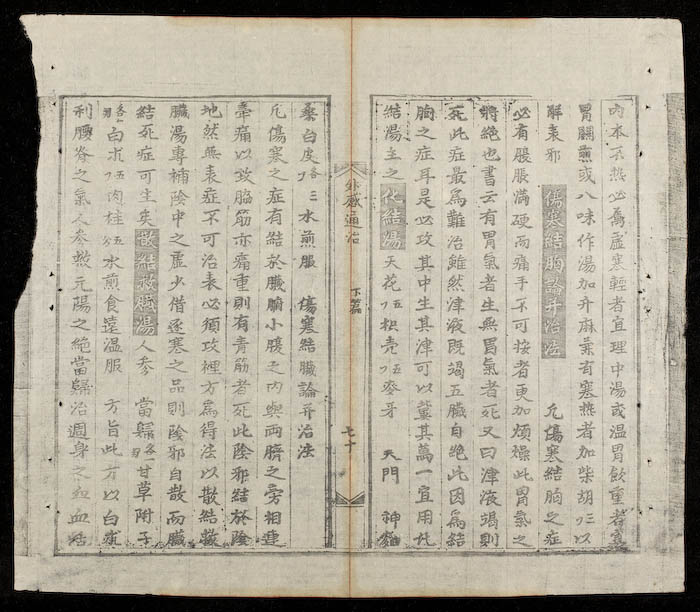 內本不熱必為虛寒輕者宜理中湯或温胃飲重者宜
胃關煎或八味作湯加升麻葉有寒熱者加柴胡以
解表邪 傷寒結胸論并治法 凢傷寒結胸之症
必有脹脹滿硬而痛手不可按者更加煩燥此胃氣之
將絶也書云有胃氣者生無胃氣者死又曰津液竭則
死此症最為難治雖然津液既竭五臟自絶此因為結
胸之症耳是必攻其中生其津可以冀其萬一宜用化
結湯主之 化結湯 天花 枳壳 麥牙 天門 神
外感通治 下篇 七十
桑白皮各三水煎服 傷寒結臟論并治法
凢傷寒之症有結於臟腑小腹之内與兩臍之旁相連
牽痛以致脇筋亦痛重則有青筋者死此陰邪結於陰
地然無表症不可治表必須攻裡方為得法以散結救
臟湯專補陰中之虛少借逐寒之品則陰邪自散而臟
結死症可生矣 散結救臟湯 人参 當歸各一甘草附子
各 白朮 五肉桂 五水煎食遠温服 方旨此方以白朮
利腰脊之氣人参救元陽之絶當歸治週身之 血活